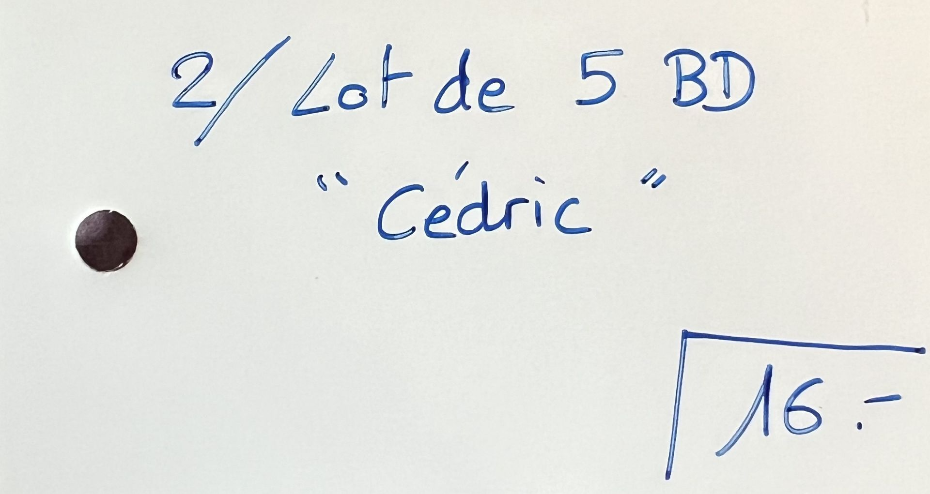 2/ Lot de 5 BD
" Cédric "
16.-